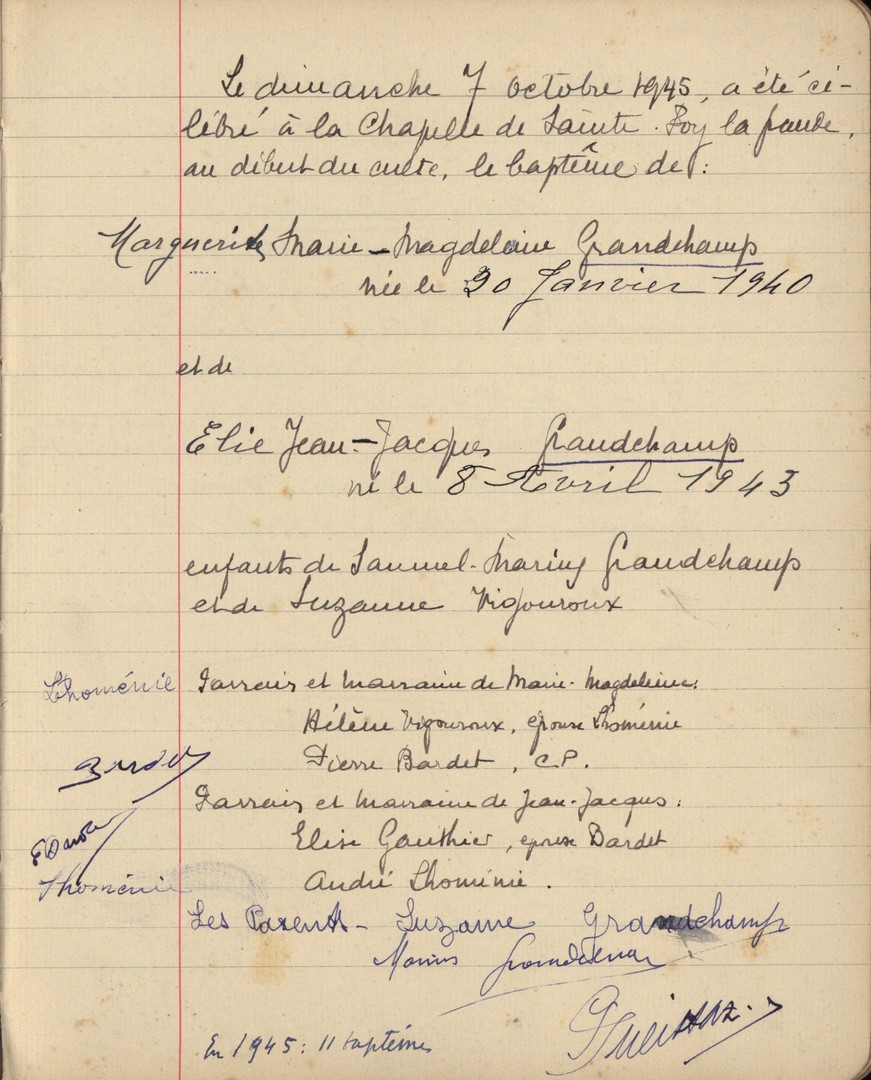 Le dimanche 7 octobre 1945, a été cé-
lébré à la Chapelle de Sainte-Foy la Grande,
au début du culte, le baptême de :
Marguerite, Marie-Magdeleine Grandchamp
née le 20 Janvier 1940
et de
Elie Jean-Jacques Grandchamp
né le 8 Avril 1943
enfants de Samuel-Marius Grandchamp
et de Suzanne Vigouroux
Lhoménie Parrain et Marraine de Marie-Magdeleine:
Hélène Vigouroux, épouse Lhoménie
Bardet Pierre Bardet, C.P.
Parrain et Marraine de Jean-Jacques :
E Bardet Elise Gauthier, épouse Bardet
Lhoménie André Lhoménie.
Les Parents - Suzanne Grandchamp
Marius Grandchamp
En 1945 : 11 baptêmes